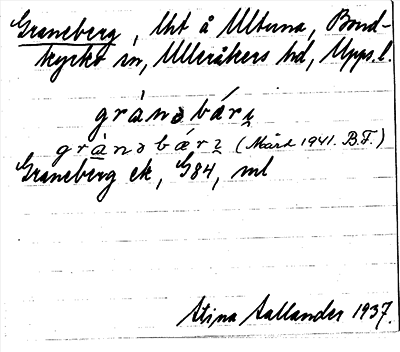 Graneberg, lht å Ultuna, Bond-
kyrko sn, Ulleråkers hd, Upps. l.
grànəbár̨ı
grànəbǽr̨ı (Mård 1941. B.F.)
Graneberg ek, G84, ml
Stina Aallander 1937.